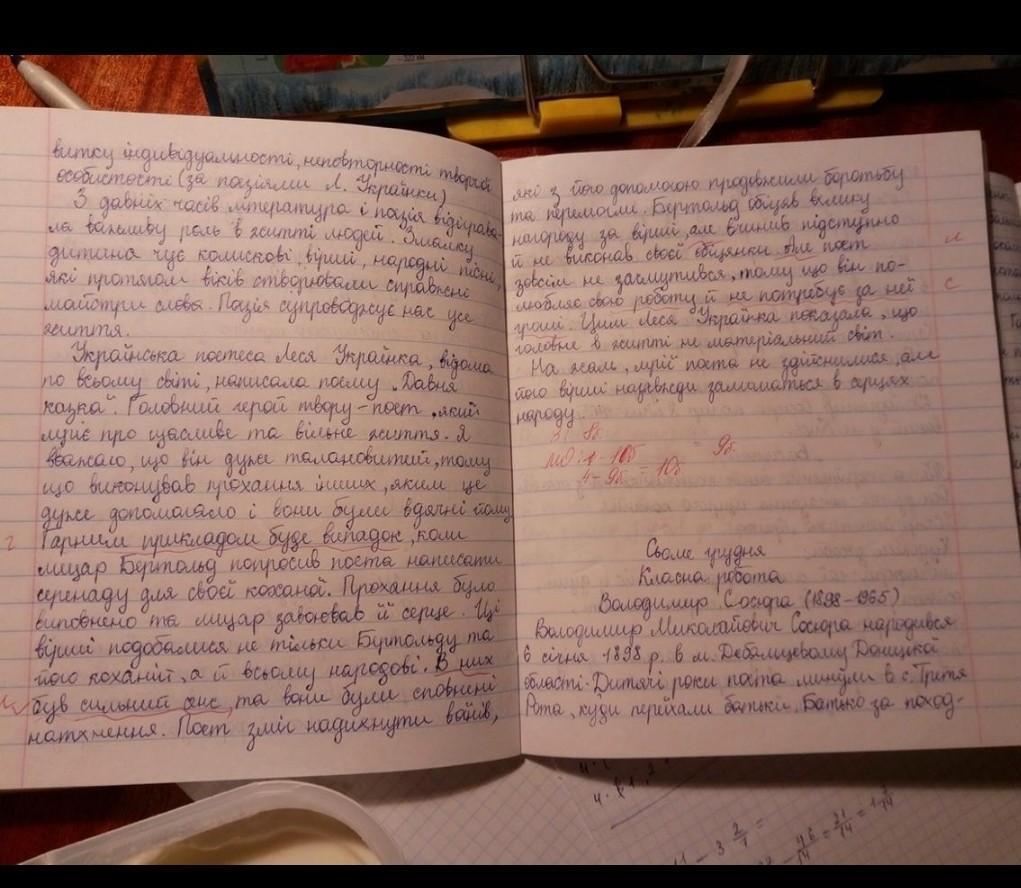 витку індивідуальності, неповторності творчої
особистості (за поезіями Л. Українки)
З давніх часів література і поезія відіграва-
ла важливу роль в житті людей. Змалку
дитина чує колискові, вірші, народні пісні,
які протягом віків створювали справжні
майстри слова. Поезія супроводжує нас усе
життя.
Українська поетеса Леся Українка, відома
по всьому світі, написала поему „Давня
казка". Головний герой твору – поет, який
мріє про щасливе та вільне життя. Я
вважаю, що він дуже талановитий, тому
що виконував прохання інших, яким це
дуже допомогало і вони були вдячні йому.
Гарним прикладом буде випадок, коли
лицар Бертольд попросив поета написати
серенаду для своєї коханої. Прохання було
виповнено та лицар завоював її серце. Ці
вірші подобалися не тільки Бертольду та
його коханій, а й всьому народові. В них
був сильний сенс, та вони були сповнені
натхнення. Поет зміг надихнути воїнів,
які з його допомогою продовжили боротьбу
та перемогли. Бертольд обіцяв велику
нагороду за вірші, але вчинив підступно
й не виконав своєї обіцянки. Але поет
зовсім не засмутився, тому що він по-
любляє свою роботу й не потребує за неї
гроші. Цим Леся Українка показала, що
головне в житті не матеріальний світ.
На жаль, мрії поета не здійснилися, але
його вірші назавжди залишаться в серцях
народу.
8б
10б
9б = 10б
9б.
Сьоме грудня
Класна робота
Володимир Сосюра (1898–1965)
Володимир Миколайович Сосюра народився
6 січня 1898 р. в м. Дебальцевому Донецької
області. Дитячі роки поета минули в с. Третя
Рота, куди переїхали батьки. Батько за поход-